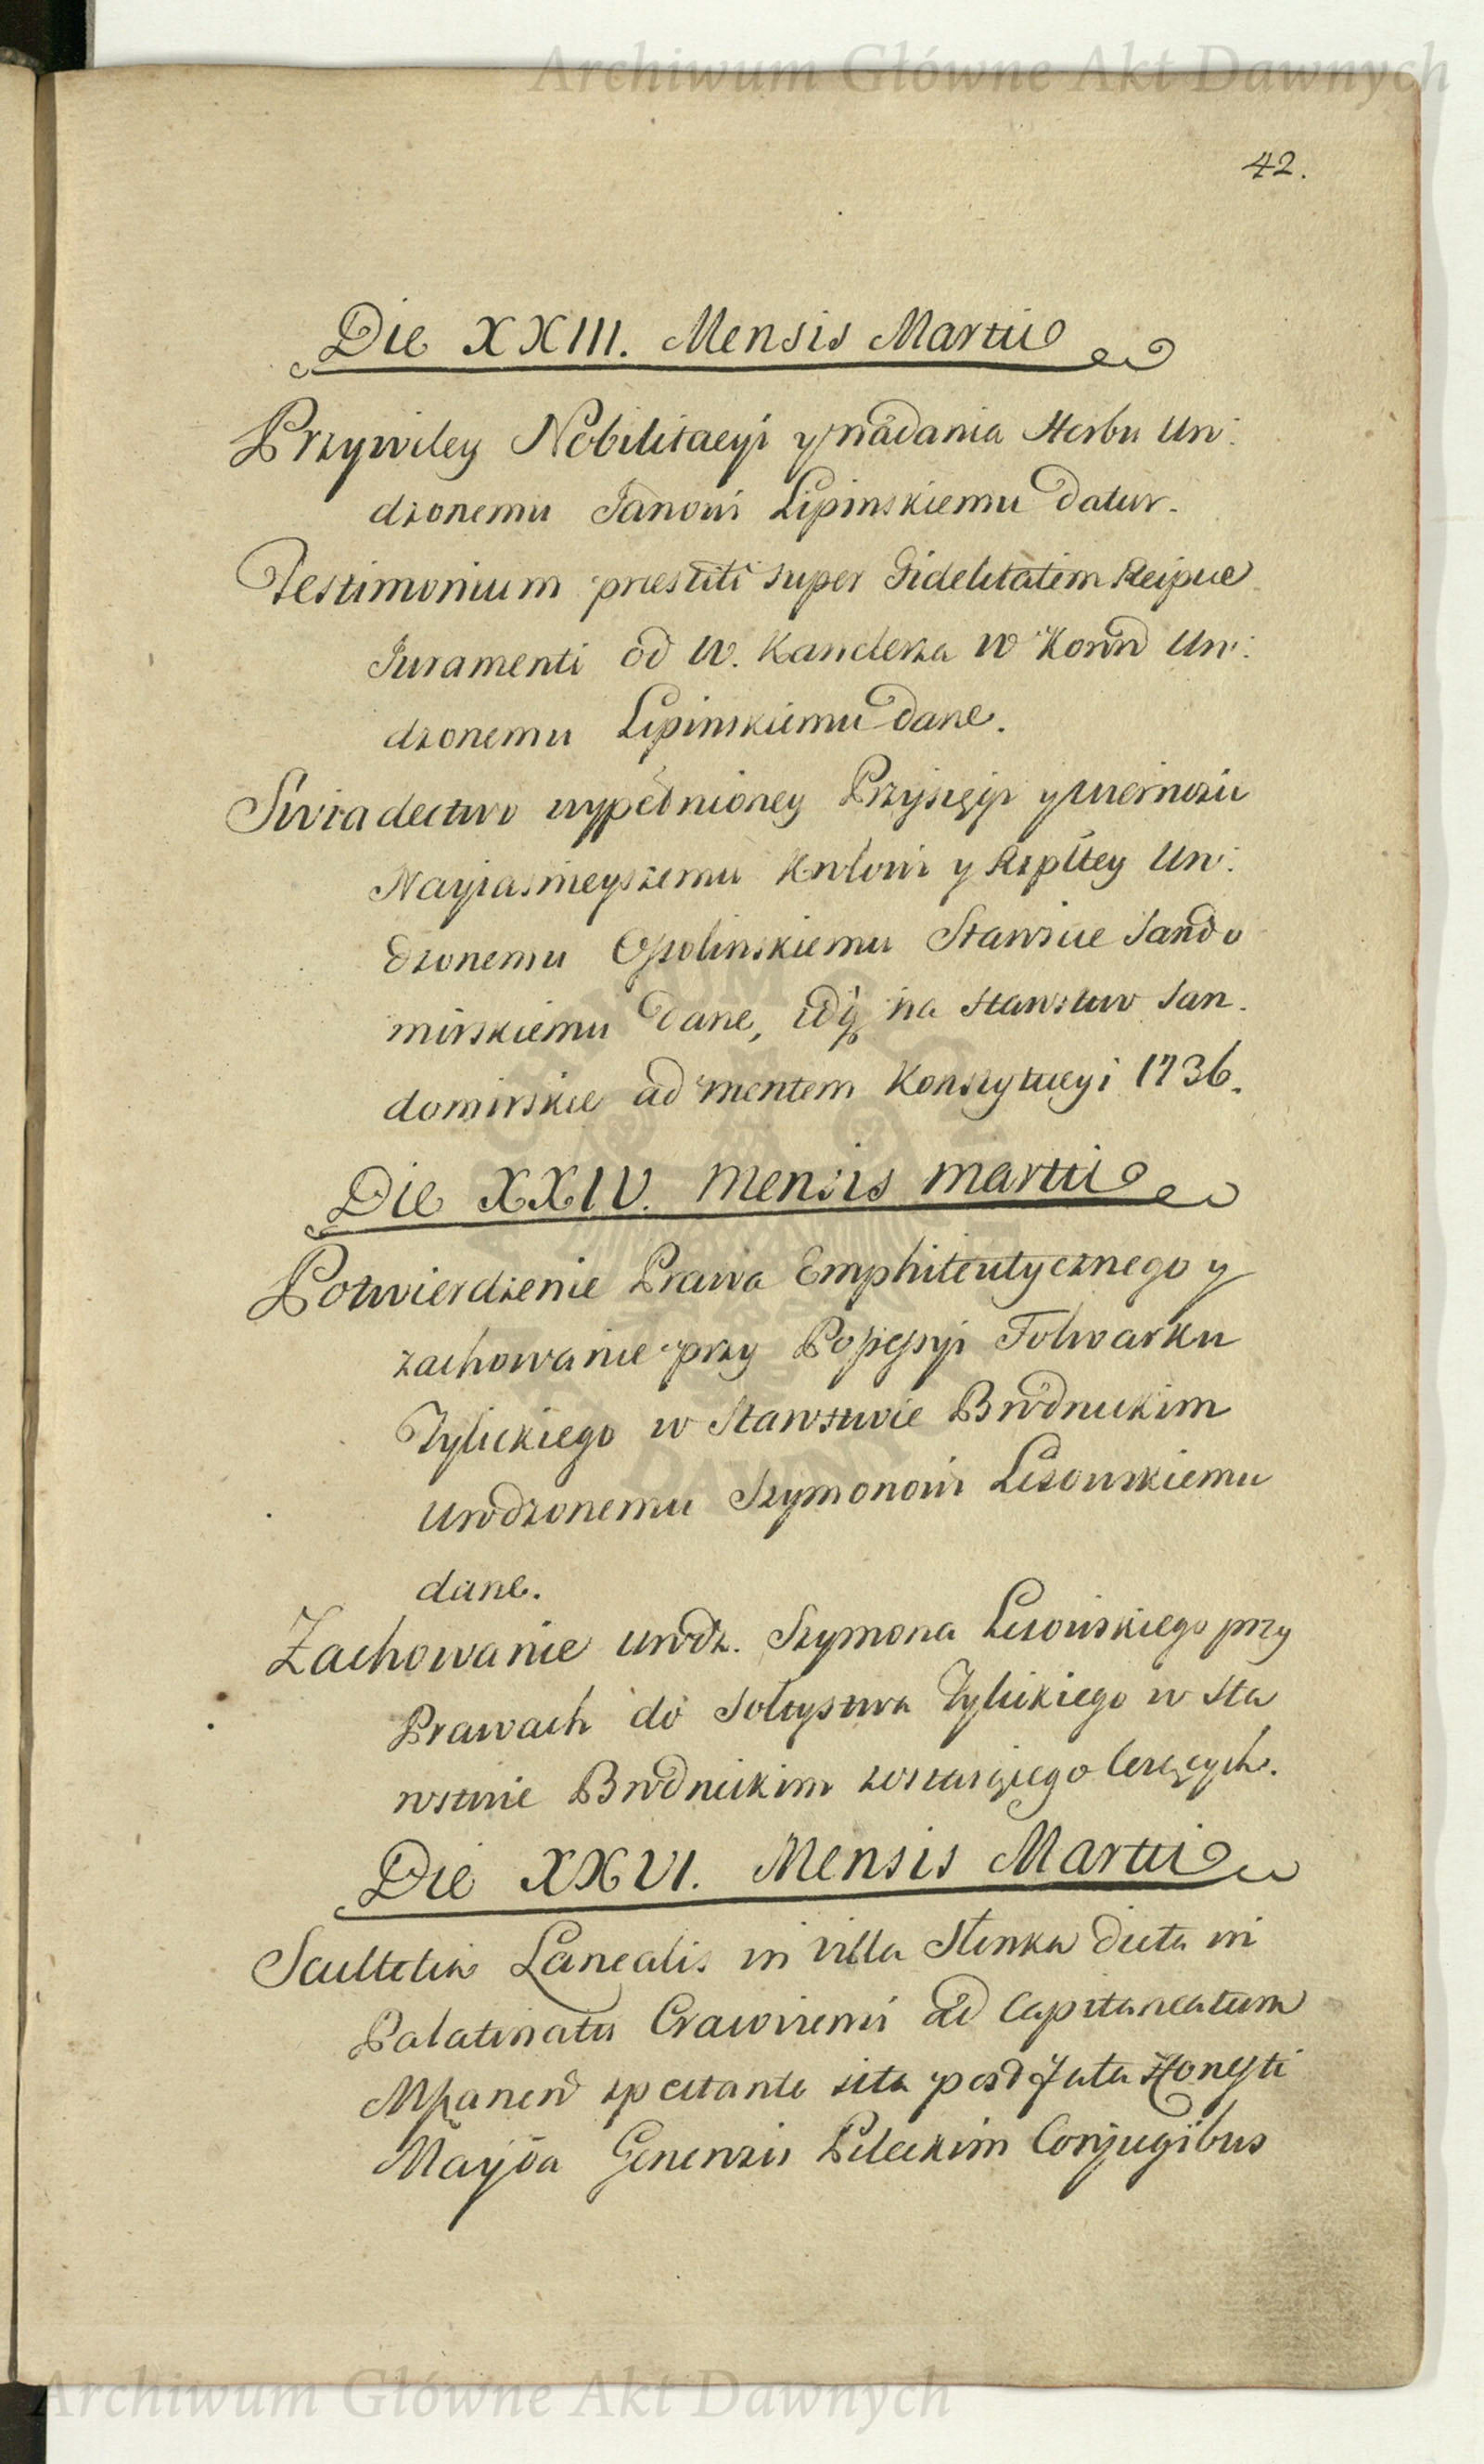 Archiwum Główne Akt Dawnych
42.
Die XXIII. Mensis Martii
Przywiley Nobilitacyi y nadania Herbu Uro:
dzonemu Janowi Lipinskiemu datur.
Testimonium præstiti super Fidelitatem Reipue
Juramenti od W. Kanclerza W Koronn Uro:
dzonemu Lipinskiemu dane.
Swiadectwo wypełnioney Przysięgi y wiernosci
Nayiasnieyszemu Krolowi y Rzpltey Uro:
dzonemu Ossolinskiemu Staroscie Sando
mirskiemu dane, na Starostwo San.
domirskie ad mentem Konstytucyi 1736.
Die XXIV. Mensis Martii
Potwierdzenie Prawa Emphiteutycznego y
zachowanie przy Possessyi Folwarku
Zylickiego w Starostwie Brodnickim
Urodzonemu Szymonowi Lisowskiemu
dane.
Zachowanie urodz. Szymona Lisowskiego przy
Prawach do Soltystwa Zylickiego w Sta
rostwie Brodnickim zostaiącego lezących.
Die XXVI. Mensis Martii
Scultetia Lanealis in Villa Stenka dicta in
Palatinatu Cracoviensi ad Capitaneatum
spectante sita post fata Honesti
Mayda Pileckim Conjugibus
Archiwum Główne Akt Dawnych